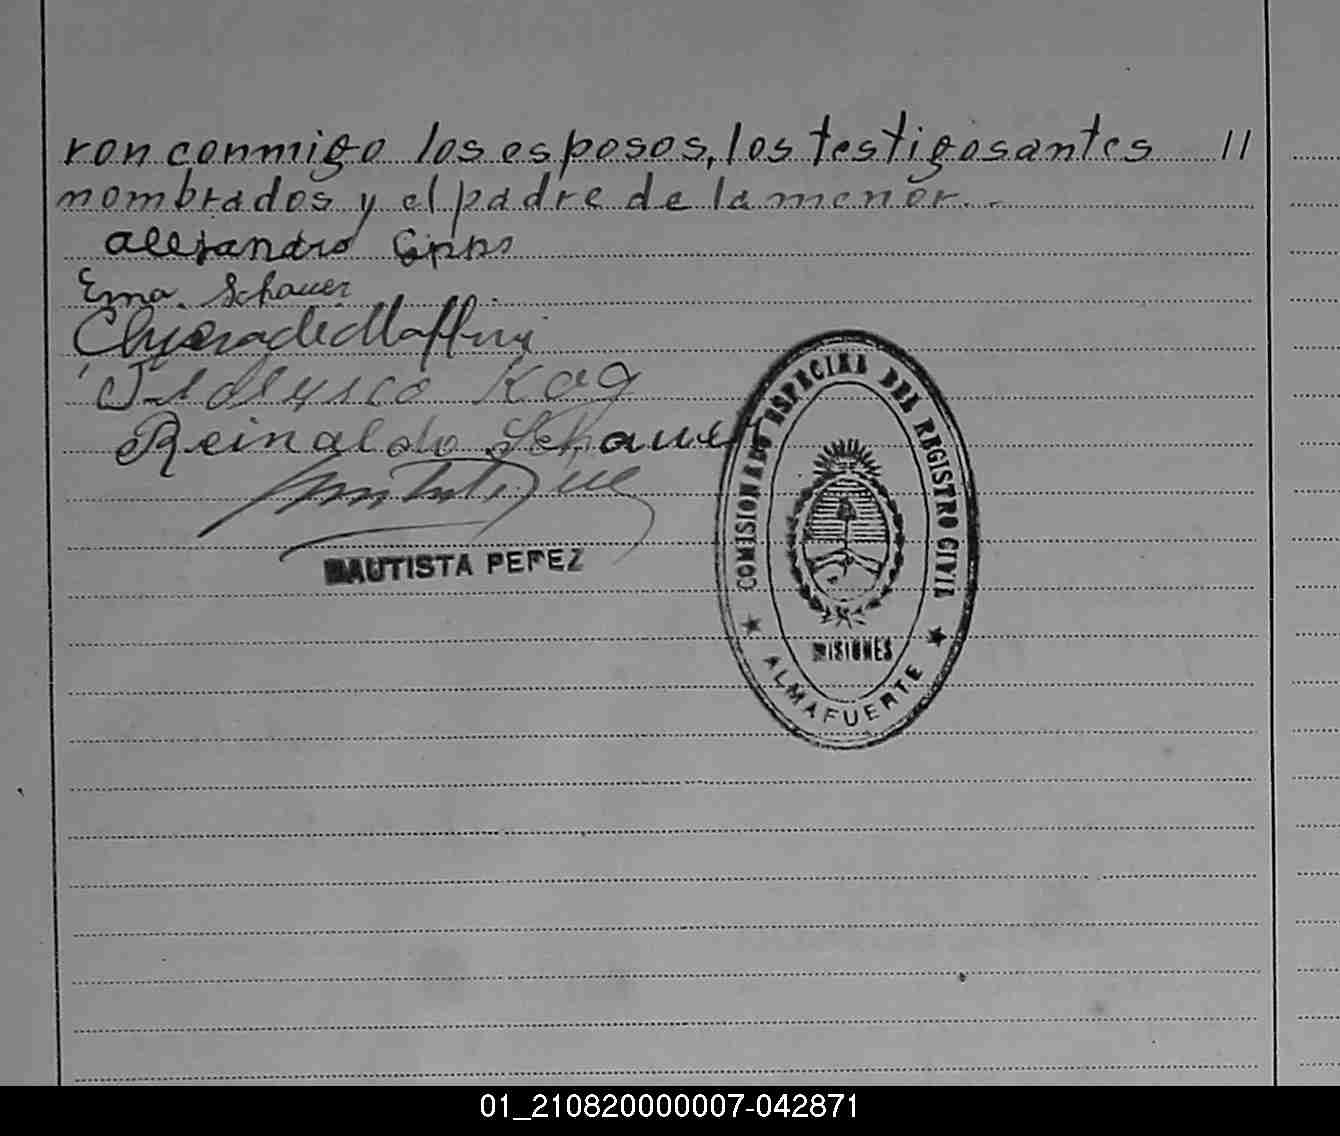 ron conmigo los esposos, los testigos antes 11
nombrados y el padre de la menor. -
Alejandro
Ema. Schauer
Reinaldo Schauer
BAUTISTA PEREZ
COMISIONADO ESPECIAL DEL REGISTRO CIVIL
MISIONES
ALMAFUERTE
01_210820000007-042871